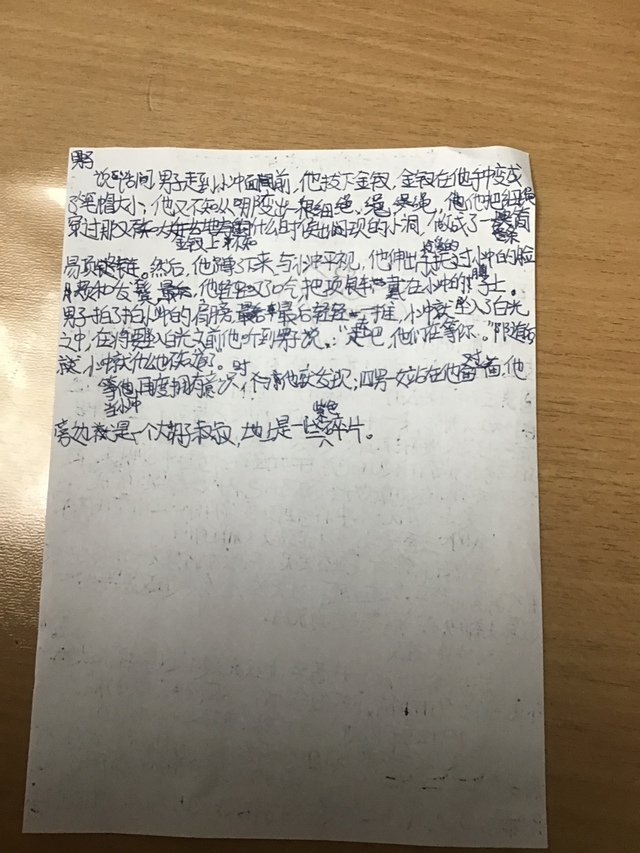 男子
说话间,男子走到小冲面前,他按下金钗,金钗在他手中变成
了笔帽大小,他又不知从哪变出一根细绳,他把细绳
穿过那又金钗上不知什么时候出现的小洞,做成了一
易项链。然后,他蹲了下来,与小冲平视,他伸出手抚过小冲的脸
颊和发鬓,他轻轻把项链戴在小冲的脖子上。
男子拍了拍小冲的肩膀,最后轻轻一推,小冲就坠入了白光
之中,在将要坠入白光之前他听到男子说:“走吧,他们在等你。”
小冲就什么也不知道了。
等他再度拥有意识时,他发现:四男一女站在他对面,他
当小冲
旁边是一个大胡子叔叔,地上是一些紫色碎片。